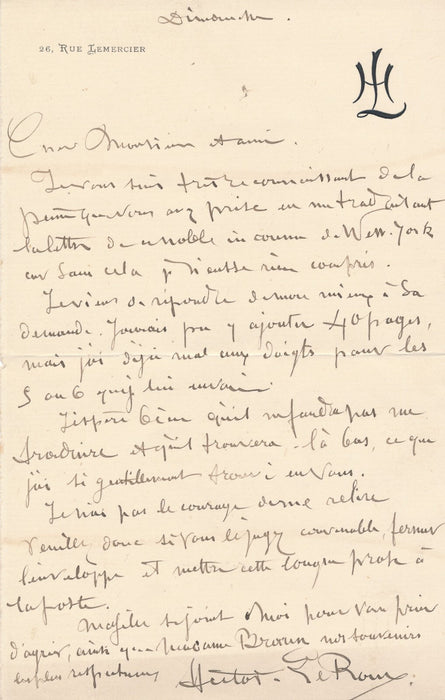 Dimanche.
26, RUE LEMERCIER
HL
Cher Monsieur et ami.
Je vous suis très reconnaissant de la
peine que vous avez prise en me traduisant
la lettre de ce noble inconnu de New-York
car sans cela je n'eusse rien compris.
Je viens de répondre de mon mieux à sa
demande. J'aurais pu y ajouter 40 pages,
mais j'ai déjà mal aux doigts pour les
5 ou 6 que je lui envoie.
J'espère bien qu'il ne faudra pas me
traduire et qu'il trouvera là bas, ce que
j'ai si gentillement trouvé en vous.
Je n'ai pas le courage de me relire
veuillez donc si vous le jugez convenable, fermer
l'enveloppe et mettre cette longue prose à
la poste.
Ma fille se joint à moi pour vous prier
d'agréer, ainsi que madame Brown nos souvenirs
les plus respectueux
Hector Le Roux.